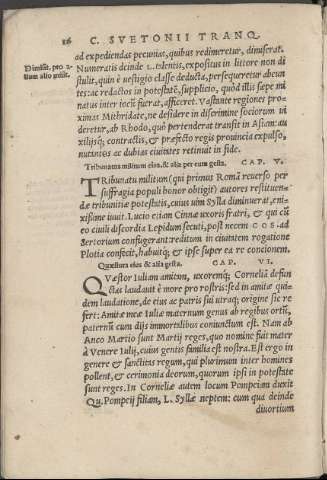 16 C. SVETONII TRANQ.
Dimisit. pro a-
lium alio misit.
ad expediendas pecunias, quibus redimeretur, dimiserat.
Numeratis deinde L. talentis, expositus in littore non di
stulit, quin è uestigio classe deducta, persequeretur abeun
tes: ac redactos in potestatē, supplicio, quod illis sæpe mi
natus inter iocū fuerat, afficeret. Vastante regiones pro-
ximas Mithridate, ne desidere in discrimine sociorum ui
deretur, ab Rhodo, quò pertenderat transijt in Asiam: au
xilijsq; contractis, & præfecto regis prouincia expulso,
nutantes ac dubias ciuitates retinuit in fide.
Tribunatus militum eius, & alia per eum gesta. CAP. V.
TRibunatu militum (qui primus Romā reuerso per
suffragia populi honor obtigit) autores restituen-
dæ tribunitiæ potestatis, cuius uim Sylla diminuerat, eni-
xissime iuuit. Lucio etiam Cinnæ uxoris fratri, & qui cū
eo ciuili discordia Lepidum secuti, post necem COS. ad
Sertorium confugerant reditum in ciuitatem rogatione
Plotia confecit, habuitq; & ipse super ea re concionem.
Quæstura eius & alia gesta. CAP. VI.
QVæstor Iuliam amitam, uxoremq; Corneliā defun
ctas laudauit è more pro rostris: sed in amitæ qui-
dem laudatione, de eius ac patris sui utraq; origine sic re
fert: Amitæ meæ Iuliæ maternum genus ab regibus ortū,
paternū cum dijs immortalibus coniunctum est. Nam ab
Anco Martio sunt Martij reges, quo nomine fuit mater
à Venere Iulij, cuius gentis familia est nostra. Est ergo in
genere & sanctitas regum, qui plurimum inter homines
pollent, & cerimonia deorum, quorum ipsi in potestate
sunt reges. In Corneliæ autem locum Pompeiam duxit
Qu. Pompeij filiam, L. Syllæ neptem: cum qua deinde
diuortium